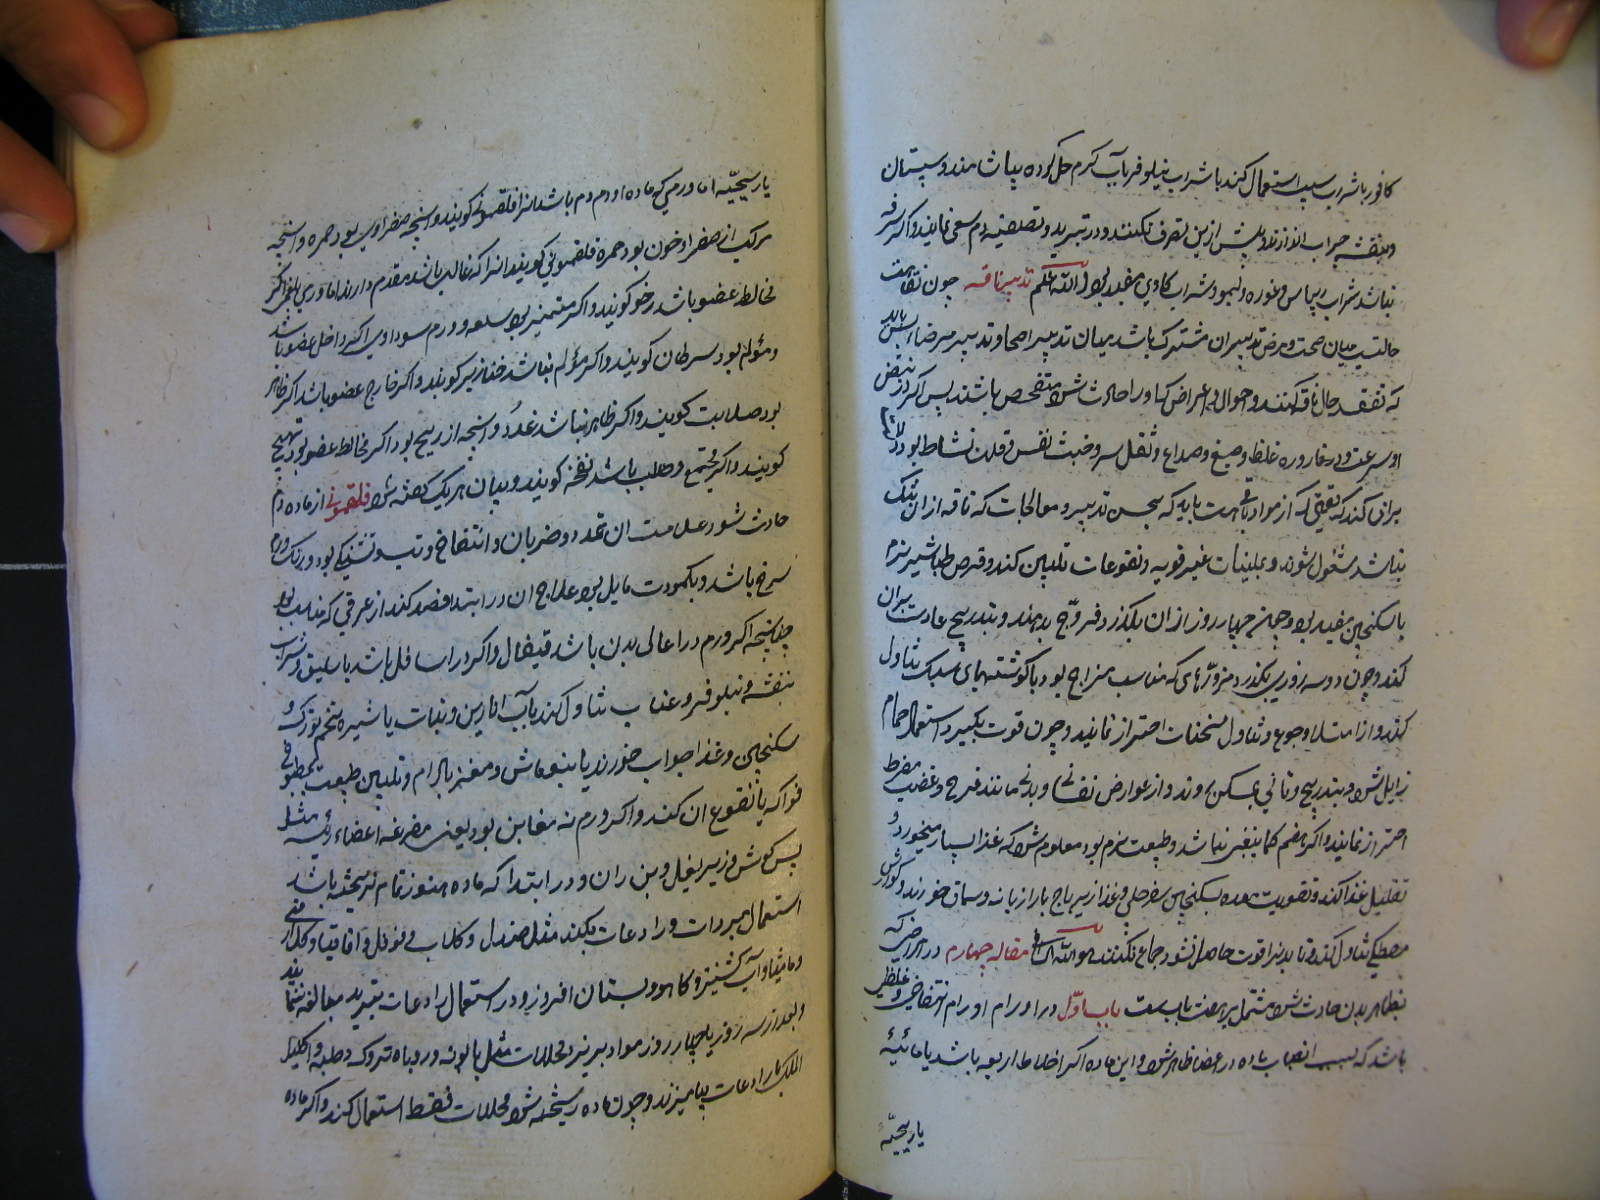 کافور باشراب سیب استعمال کنند یا شراب نیلوفر بآب کرم حل کرده بیاشامند و سپستان
وبنفشه چرب اندازند وپیش ازین تصرف نکنند و در تبرید و تصفیه دم سعی نمایند واکر سرفه
نباشد شراب ریباس وغوره ولیمو وشراب کاوی مفید بود والله اعلم تدبیر ناقه چون نقاهت
حالتیست میان صحت ومرض تدبیر ان مشترک باشد میان تدبیر اصحا وتدبیر مرضا پس باید
که تفقد حال ناقه کنند واحوال واعراض که اورا حادث شود متفحص باشند پس اکر در نبض
او سرعت و در قاروره غلظ وصبغ وصداع وثقل سر وخبث نفس وقلت نشاط بود دلالت
بران کند که بقیتی از مواد باقی است باید که بحسن تدبیر ومعالجات که ناقه ازان تنک
نباشد مشغول شوند و بملینات غیر قویه ونقوعات تلیین کند وقرص طباشیر نرم
باسکنجبین مفید بود وچون چهار روز ازان بکذرد فروج بدهند وبتدریج عادت بران
کند وچون دو سه روزی بکذرد مزورهای که مناسب مزاج بود باکوشتهای سبک تناول
کنند واز امتلا وجوع وتناول مسخنات احتراز نمایند وچون قوت بکیرد استعمال حمام
زایل شود وبتدریج وتانی بمسکن برود واز عوارض نفسانی وبدنی مانند فرح وغضب مفرط
احتراز نمایند واکر هضم کما ینبغی نباشد وطبیعت نرم بود معلوم شود که غذا بسیار میخورد و
تقلیل غذا کند وتقویت معده بسکنجبین سفرجلی وغذا زیرباج بارازیانه وسماق خورند وکوارش
مصطکی تناول کند وتا بدنرا قوت حاصل نشود جماع نکنند هو الله الشافی مقاله چهارم در امراضی که
بظاهر بدن حادث شود مشتمل بر هفت باب است باب اول در اورام اورام انتفاخی وغلظی
باشد که بسبب انصباب ماده در اعضا ظاهر شود واین ماده اکر اخلاط اربعه باشد یا مائیه
یا ریحیه
یا ریحیه اما ورمی که ماده او دم دم باشد انرا فلغمونی کویند وانچه صفراوی بود حمره وانچه
مرکب از صفرا وخون بود حمره فلغمونی کویند انرا که غالب باشد مقدم دارند اما ورم بلغمی اکر
مخالط عضو باشد رخو کویند واکر متمیز بود سلعه وورم سوداوی اکر داخل عضو باشد
ومؤلم بود سرطان کویند واکر مؤلم نباشد خنازیر کویند واکر خارج عضو باشد اکر ظاهر
بود صلابت کویند واکر ظاهر نباشد غدد وانچه از ریح بود اکر مخالط عضو بود تهبج
کویند واکر مجتمع وصلب باشد نفخه کویند وبیان هر یک کفته شود فلغمونی از ماده دم
حادث شود علامت ان تمدد وضربان وانتفاخ وتب وتشنکی بود ورنک ورم
سرخ باشد وبکمودت مایل بود علاج ان در ابتدا فصد کند از عرقی که مناسب بود
چنانچه اکر ورم در اعالی بدن باشد قیفال واکر در اسافل باشد باسلیق وشراب
بنفشه ونیلوفر وعناب تناول کند بآب انارین ونبات یا شیره تخم بزرک و
سکنجبین وغذا جواب خورند یا بنوماش ومغز بادام وتلیین طبیعت بمطبوخ
فواکه یا نقوع ان کند واکر ورم نه مغابن بود یعنی مفرغه اعضاء رئیسه مثل
پس کوش وزیر بغل وبن ران ودر ابتدا که ماده هنوز تمام نریخته باشد
استعمال مبردات ورادعات بکند مثل صندل وکلاب وفوفل واقاقیا وکل ارمنی
ومامیثا وآب کشنیز وکاهو وبستان افروز ودر استعمال رادعات تبرید مبالغه ننمایند
وبعد از سه روز یا چهار روز مواد بریزد محللات مثل بابونه وروباه تروک وحلبه واکلیل
الملک با رادعات بیامیزند وچون ماده ریخته شود محللات فقط استعمال کند واکر ماده